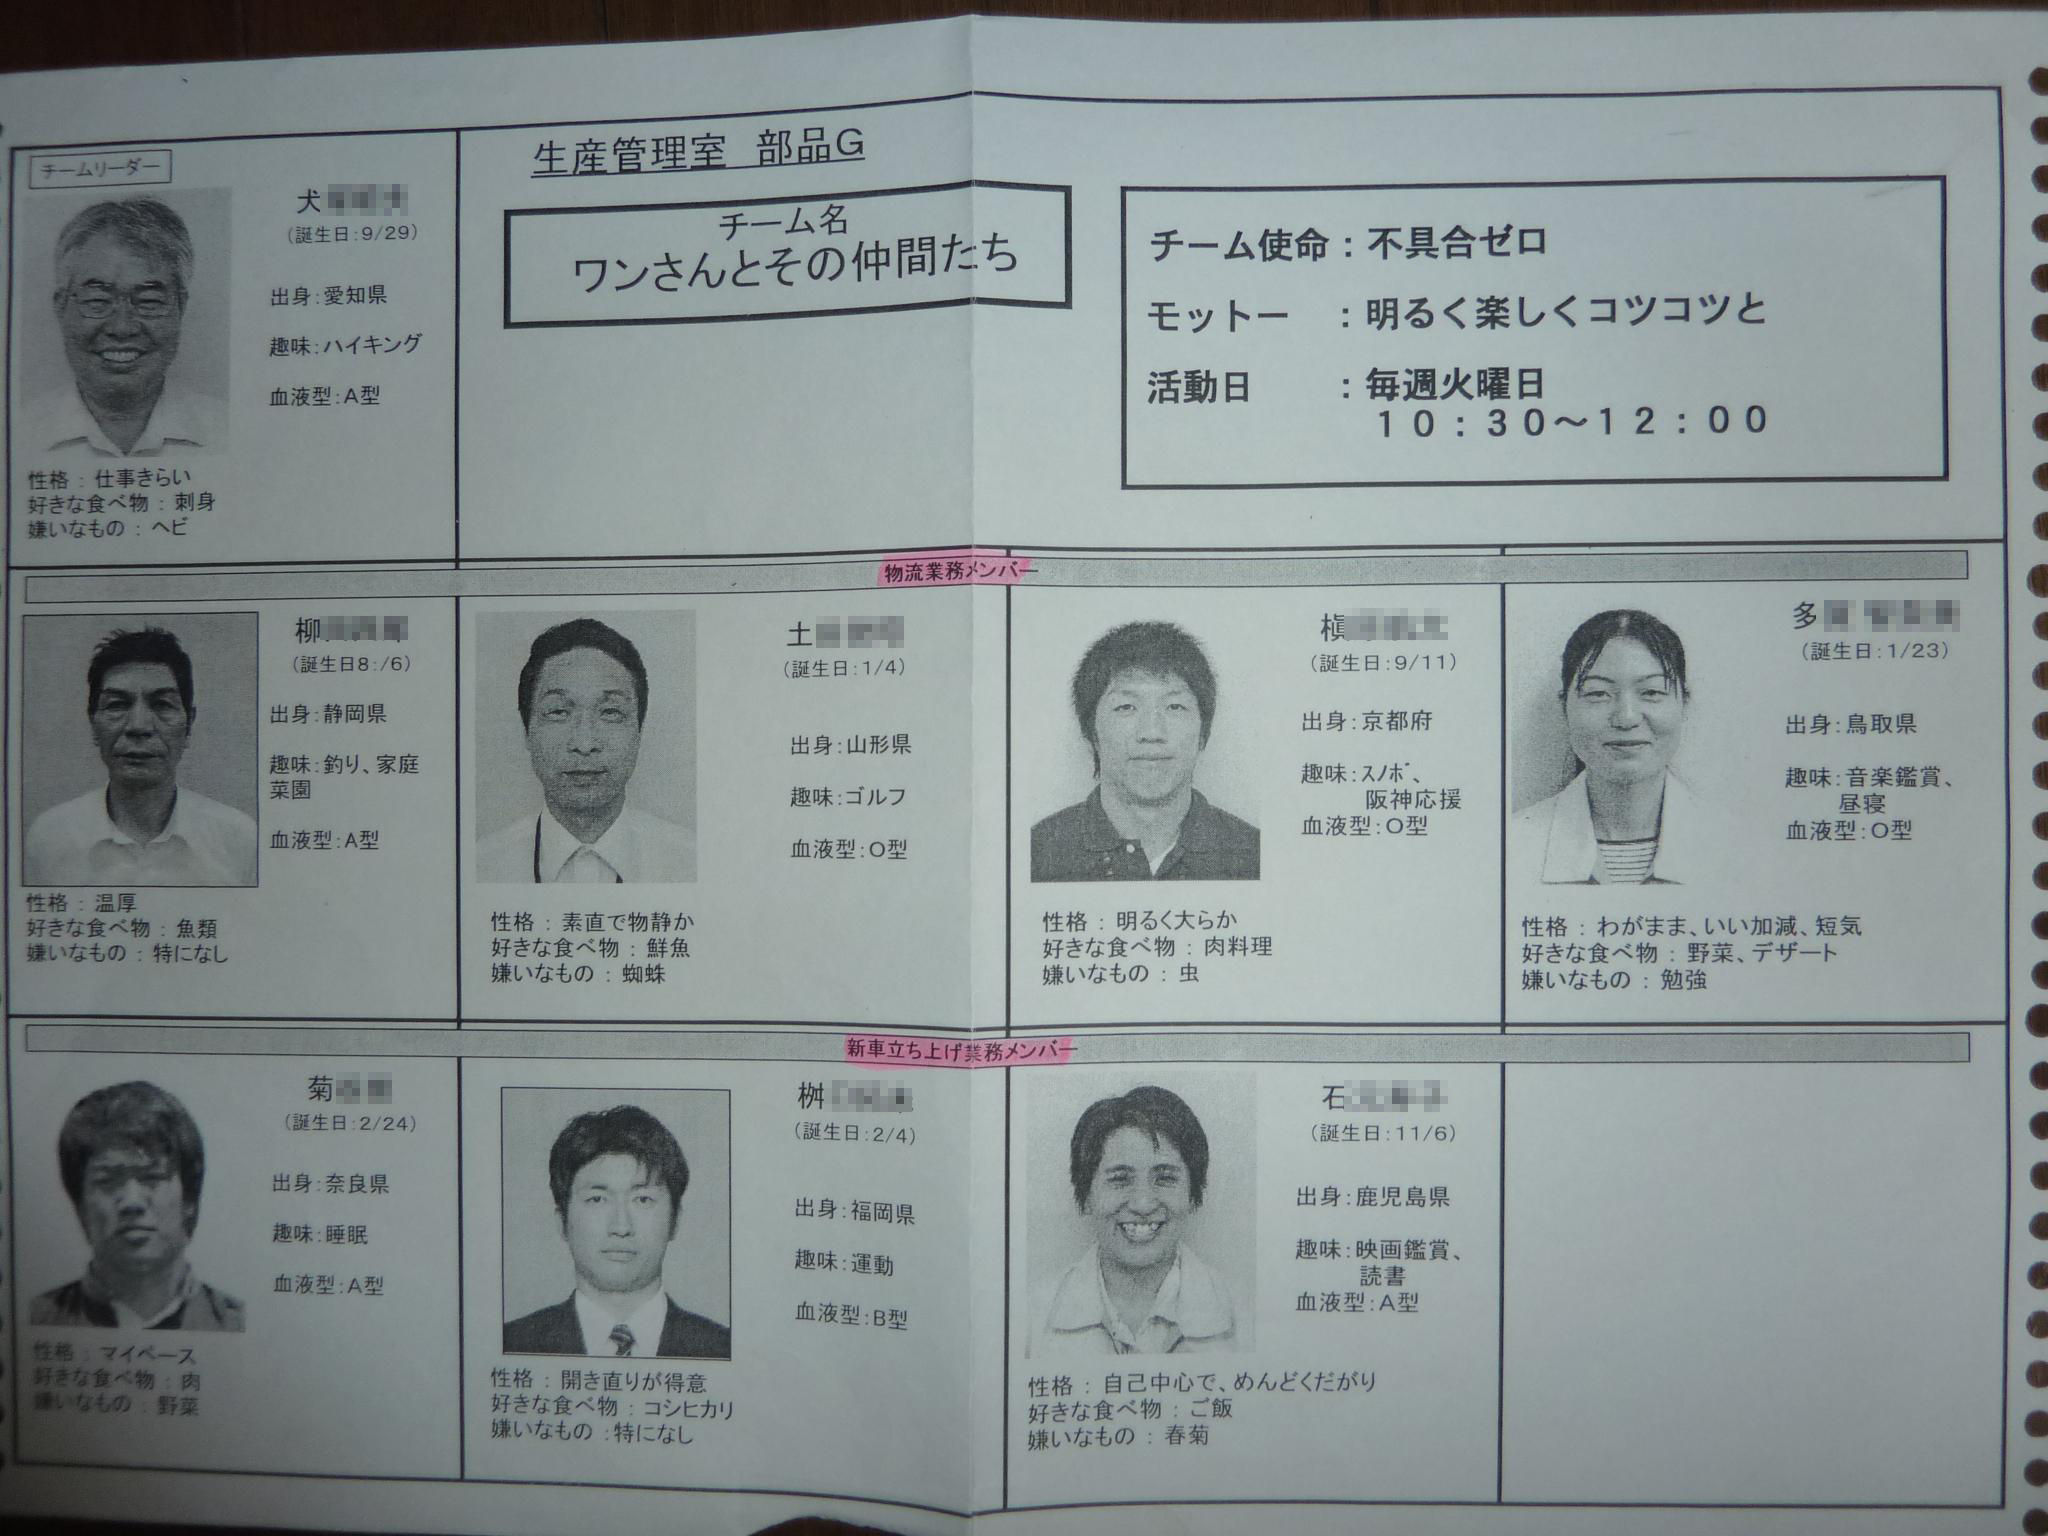 チームリーダー
犬
(誕生日:9/29)
出身:愛知県
趣味:ハイキング
血液型:A型
性格 : 仕事きらい
好きな食べ物 : 刺身
嫌いなもの : ヘビ
生産管理室 部品G
チーム名
ワンさんとその仲間たち
チーム使命 : 不具合ゼロ
モットー : 明るく楽しくコツコツと
活動日 : 毎週火曜日
10:30～12:00
物流業務メンバー
柳
(誕生日8:/6)
出身:静岡県
趣味:釣り、家庭
菜園
血液型:A型
性格 : 温厚
好きな食べ物 : 魚類
嫌いなもの : 特になし
土
(誕生日:1/4)
出身:山形県
趣味:ゴルフ
血液型:O型
性格 : 素直で物静か
好きな食べ物 : 鮮魚
嫌いなもの : 蜘蛛
槇
(誕生日:9/11)
出身:京都府
趣味:ｽﾉﾎﾞ、
阪神応援
血液型:O型
性格 : 明るく大らか
好きな食べ物 : 肉料理
嫌いなもの : 虫
多
(誕生日:1/23)
出身:鳥取県
趣味:音楽鑑賞、
昼寝
血液型:O型
性格 : わがまま、いい加減、短気
好きな食べ物 : 野菜、デザート
嫌いなもの : 勉強
新車立ち上げ業務メンバー
菊
(誕生日:2/24)
出身:奈良県
趣味:睡眠
血液型:A型
性格 : マイペース
好きな食べ物 : 肉
嫌いなもの : 野菜
桝
(誕生日:2/4)
出身:福岡県
趣味:運動
血液型:B型
性格 : 開き直りが得意
好きな食べ物 : コシヒカリ
嫌いなもの :特になし
石
(誕生日:11/6)
出身:鹿児島県
趣味:映画鑑賞、
読書
血液型:A型
性格 : 自己中心で、めんどくだがり
好きな食べ物 : ご飯
嫌いなもの : 春菊